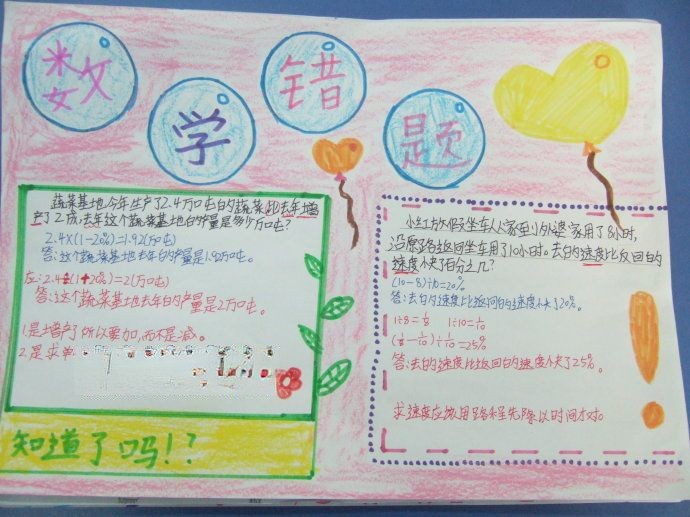 数学错题
蔬菜基地今年生产了2.4万吨的蔬菜,比去年增
产了2成,去年这个蔬菜基地的产量是多少万吨?
2.4×(1-20%)=1.92(万吨)
答:这个蔬菜基地去年的产量是1.92万吨。
2.4÷(1+20%)=2(万吨)
答:这个蔬菜基地去年的产量是2万吨。
1.是增产了所以要加,而不是减。
2.是求单
知道了吗!?
小红放假坐车从家到外婆家用了8小时,
沿原路返回坐车用了10小时。去的速度比返回的
速度快了百分之几?
(10-8)÷10=20%
答:去的速度比返回的速度快了20%。
1÷8=1/8 1÷10=1/10
(1/8-1/10)÷1/10=25%
答:去的速度比返回的速度快了25%。
求速度应该用路程先除以时间才对。